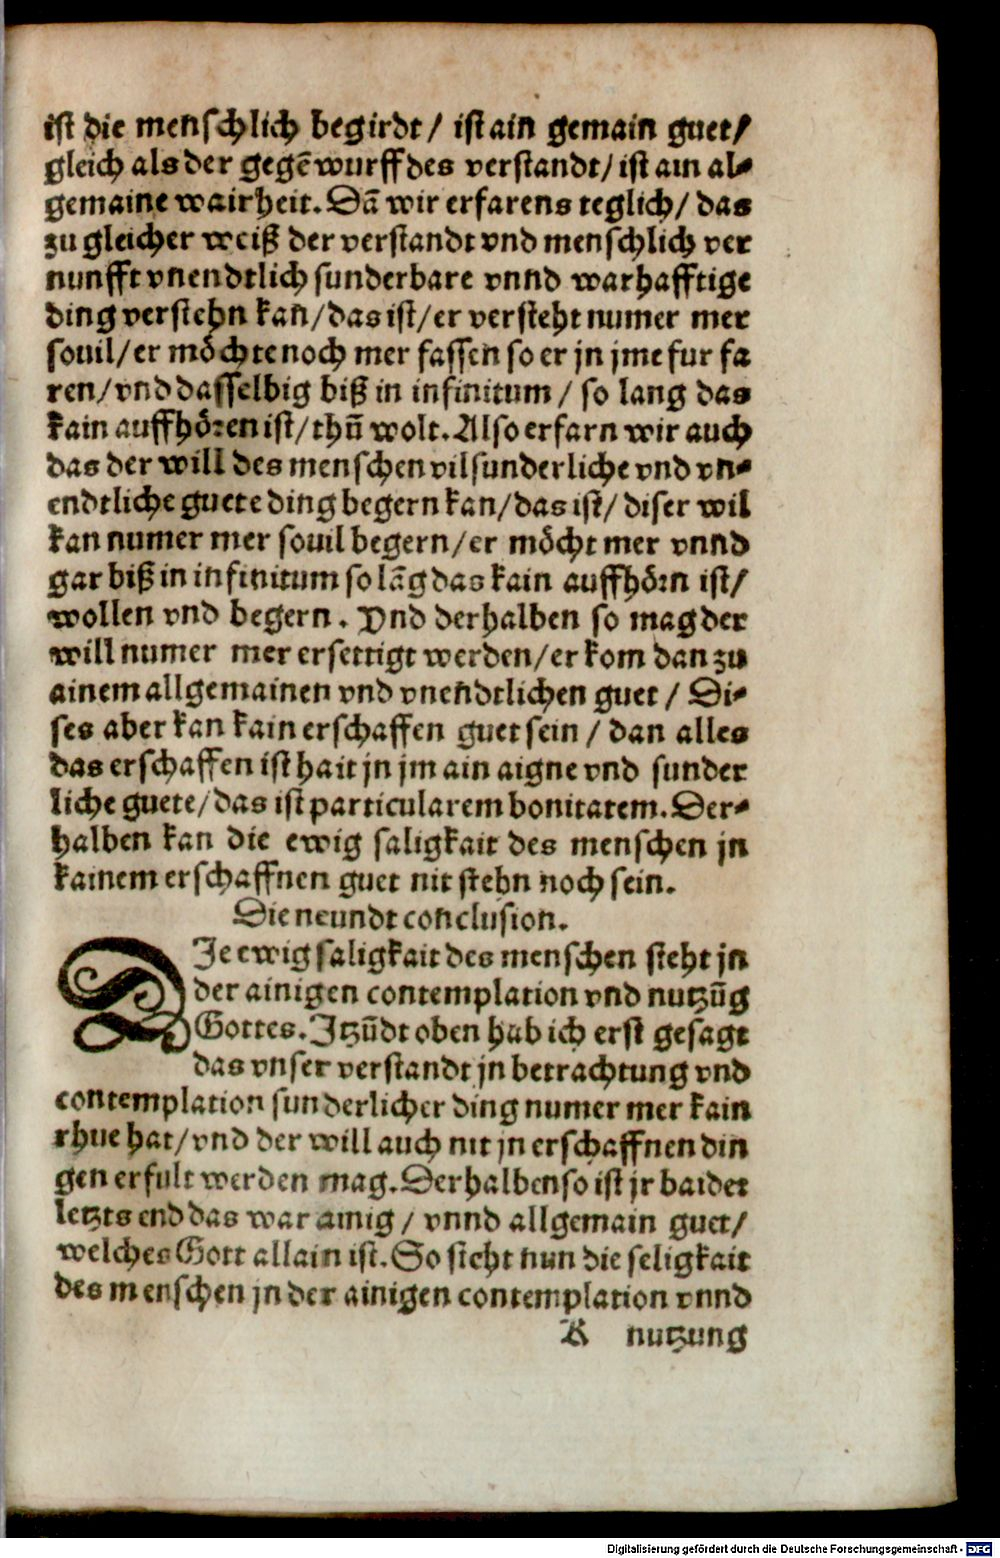 ist die menschlich begirdt/ ist ain gemain guet/
gleich als der gegēwurff des verstandt/ ist ain al⸗
gemaine wairheit. Dā wir erfarens teglich/ das
zu gleicher weiß der verstandt vnd menschlich ver
nunfft vnendtlich sunderbare vnnd warhafftige
ding verstehn kan/ das ist/ er versteht numer mer
souil/ er möchte noch mer fassen so er jn jme fur fa
ren/ vnd dasselbig biß in infinitum/ so lang das
kain auffhören ist/ thū wolt. Also erfarn wir auch
das der will des menschen vil sunderliche vnd vn⸗
endtliche guete ding begern kan/ das ist/ diser wil
kan numer mer souil begern/ er möcht mer vnnd
gar biß in infinitum so lāg das kain auffhörn ist/
wollen vnd begern. Vnd derhalben so mag der
will numer mer ersettigt werden/ er kom dan zu
ainem allgemainen vnd vnendtlichen guet/ Di⸗
ses aber kan kain erschaffen guet sein/ dan alles
das erschaffen ist hait jn jm ain aigne vnd sunder
liche guete/ das ist particularem bonitatem. Der⸗
halben kan die ewig saligkait des menschen jn
kainem erschaffnen guet nit stehn noch sein.
Die neundt conclusion.
DIe ewig saligkait des menschen steht jn
der ainigen contemplation vnd nutzūg
Gottes. Itzūdt oben hab ich erst gesagt
das vnser verstandt jn betrachtung vnd
contemplation sunderlicher ding numer mer kain
rhue hat/ vnd der will auch nit jn erschaffnen din
gen erfult werden mag. Derhalben so ist jr baider
letzts end das war ainig/ vnnd allgemain guet/
welches Gott allain ist. So steht nun die seligkait
des menschen jn der ainigen contemplation vnnd
K nutzung
Digitalisierung gefördert durch die Deutsche Forschungsgemeinschaft - DFG